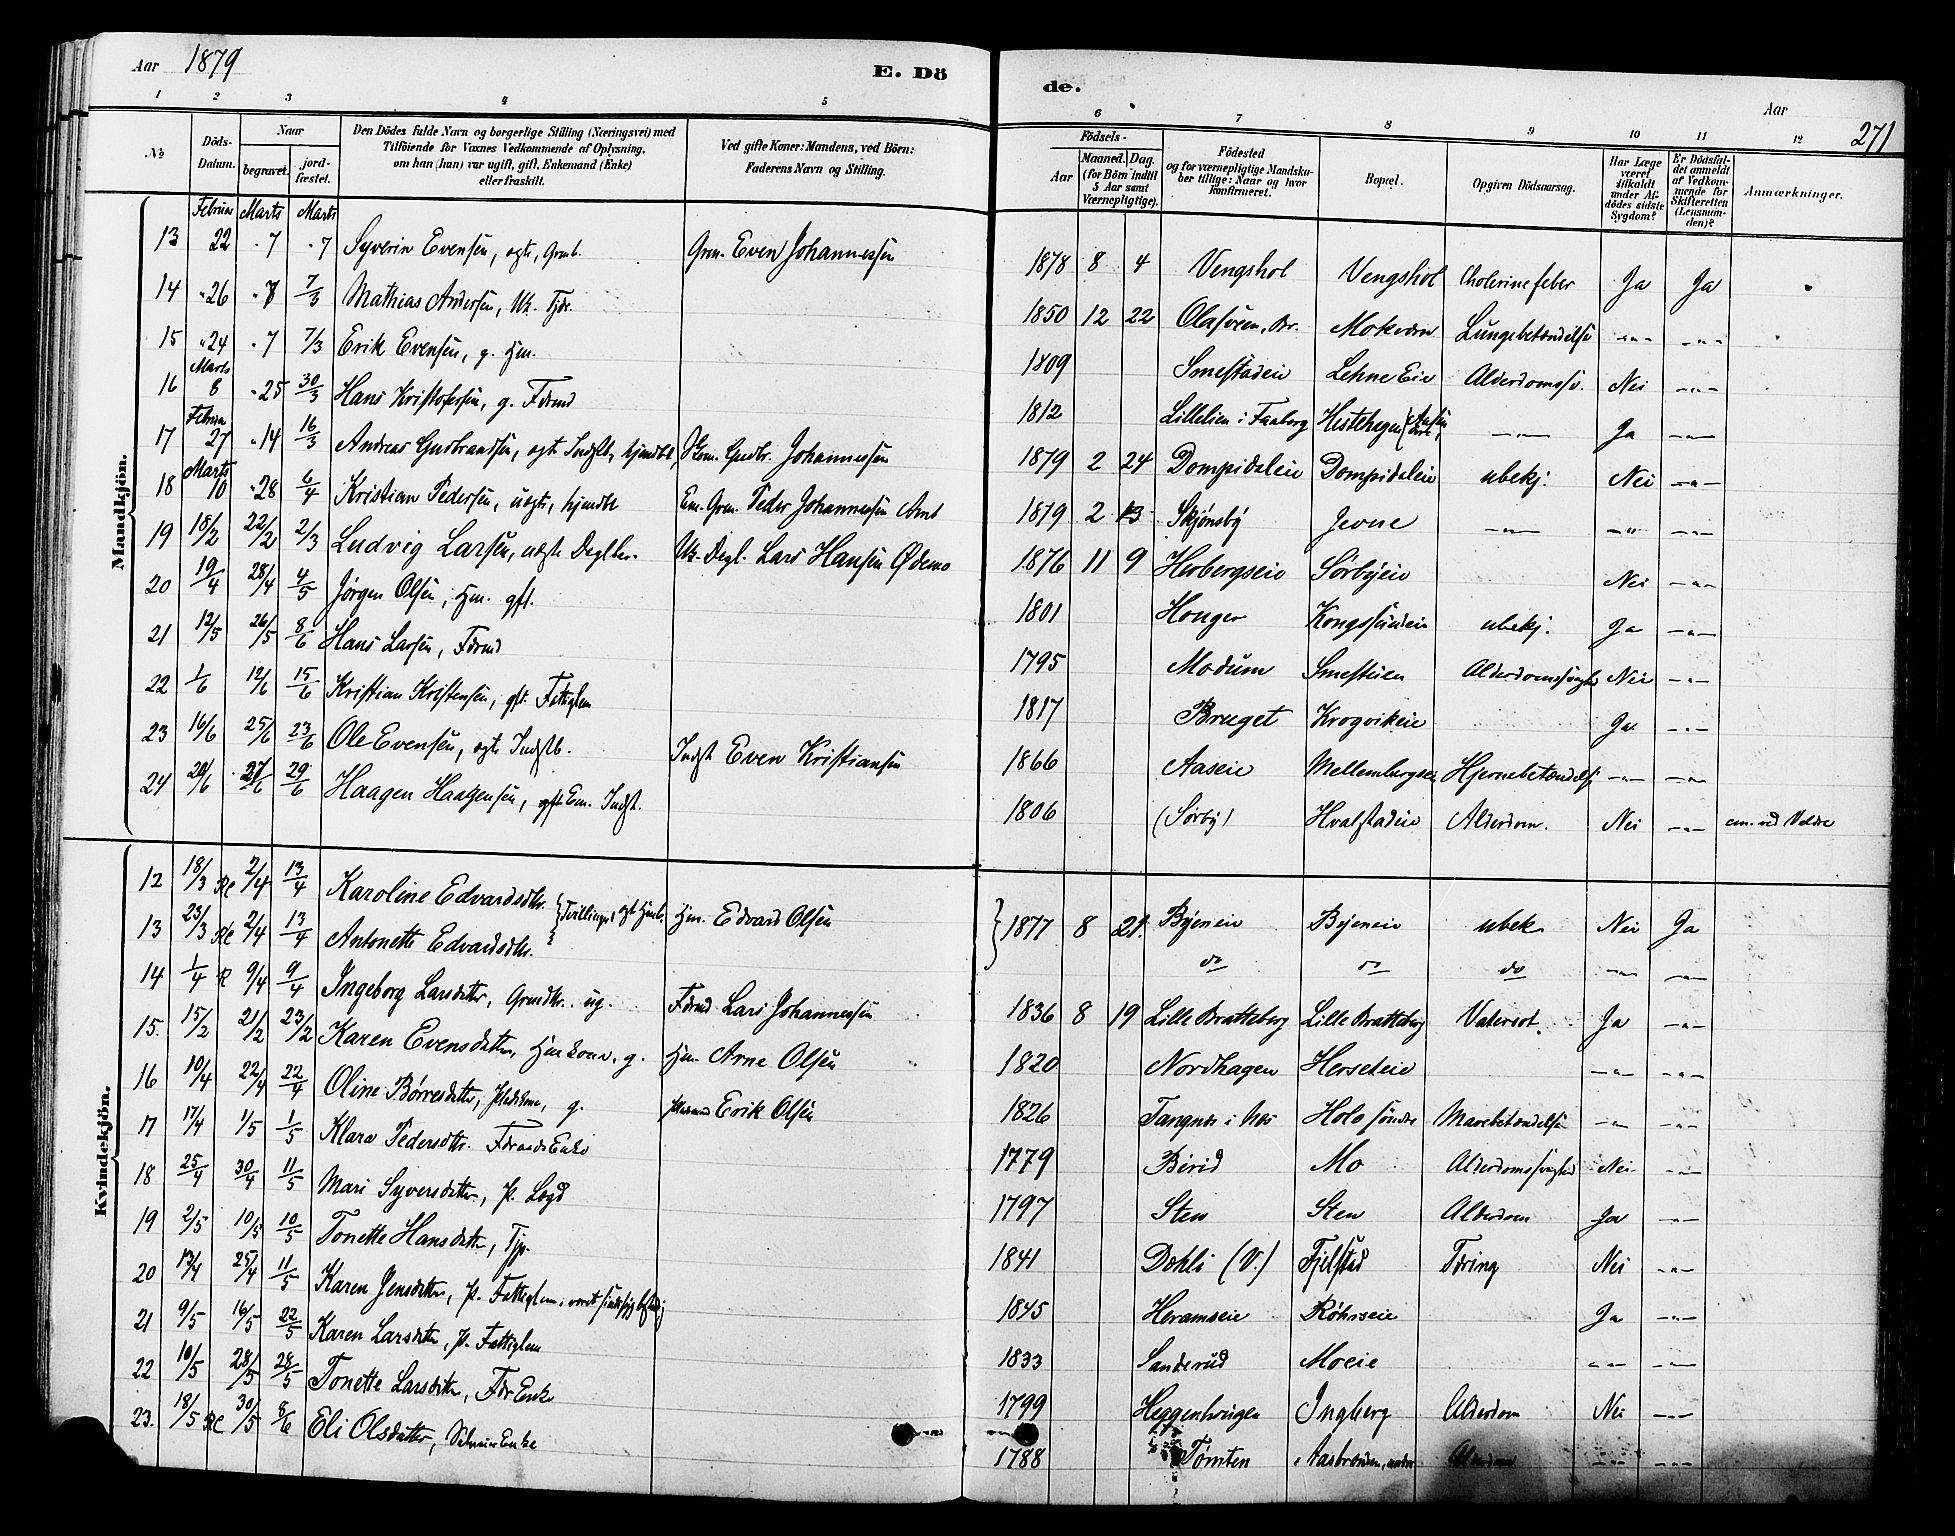 Aar 1879
E. Dö
de.
Aar
271
1 2 3 4 5
6 7 8 9 10 11 12
No
Döds-Datum.
Naar
begravet.
jord-fæstet.
Den Dödes fulde Navn og borgerlige Stilling (Næringsvei) med
Tilföiende for Voxnes Vedkommende af Oplysning,
om han (hun) var ugift, gift, Enkemand (Enke)
eller fraskilt.
Ved gifte Koner: Mandens, ved Börn:
Faderens Navn og Stilling.
Födsels-
Aar
Maaned. Dag.
(for Börn indtil
5 Aar samt
Værnepligtige).
Födested
og for værnepligtige Mandska-
ber tillige: Naar og hvor
konfirmeret.
Bopæl.
Opgiven Dödsaarsag.
Har Læge
været
tilkaldt
under Af-
dödes sidste
Sygdom?
Er Dödsfal-
det anmeldt
af Vedkom-
mende for
Skifteretten
(Lensman-
den)?
Anmærkninger.
Mandkjön.
Februar Marts Marts
13 22 " 7 " 7 Syverin Evensen, ægte, Grm. Even Johannessen 1878 8 4 Vengshol Vengshol Cholerinefeber Ja Ja
14 " 26 " 7 7/3 Mathias Andersen, Uk. Tjdr. 1850 12 22 Olasveen, Br. Lungebetændelse -"-
15 " 24 " 7 7/3 Erik Evensen, g. Hm. 1809 Smestadeie Lehne Eie Alderdomssv. Nei -"-
Marts
16 8 " 25 30/3 Hans Kristofersen, g. 1812 Lillelien i Faaberg Hestehagen -"- Ja -"-
Februar
17 27 " 14 16/3 Andreas Gudbrandsen, ægte hjemdbt. Gudbr. Johannessen 1879 2 24 Dompidaleie Dompidaleie ubekj. Nei -"-
Marts
18 10 " 28 6/4 Kristian Pedersen, uægte, hjemdbt Em. Grm. Peder Johannessen 1879 2 13 Skjønsby Jevne -"- -"- -"-
19 18/2 22/2 2/3 Ludvig Larsen, uægte Lars Hansen Ødemo 1876 11 9 Herbergseie Sörbyeie Nei -"-
20 19/4 28/4 4/5 Jørgen Olsen, Hm. gft. 1801 Honger ubekj. Ja -"-
21 12/5 26/5 8/6 Hans Larsen, 1795 Modum Smestuen Alderdomssvaghed Nei -"-
22 1/6 12/6 15/6 Kristian Kristensen, gft. Fattiglem 1817 Bruget Krogvikeie Ja -"-
23 16/6 25/6 23/6 Ole Evensen, ægte Indst Even Kristiansen 1866 Aaseie Hjernebetændelse -"- -"-
24 20/6 27/6 29/6 Haagen Haagensen, Em. Indst. 1806 (Sörby) Hvalstadeie Alderdom. Nei -"-
Kvindekjön.
12 18/3 2/4 13/4 Karoline Edvardsdtr. Tvillinger Hm. Edvard Olsen 1877 8 21 Byeneie Byeneie ubek Nei Ja
13 23/3 2/4 13/4 Antonette Edvardsdtr. do do do -"- -"-
14 1/4 9/4 9/4 Ingeborg Larsdatter, ug. Lars Johannessen 1836 8 19 Lille Bratteberg Lille Bratteberg Vatersot. Ja -"-
15. 15/2 21/2 23/2 Karen Evensdatter, g. Hm. Arne Olsen 1820 Nordhagen Herseteie -"- -"-
16 10/4 22/4 22/4 Oline Børresdatter, g. Erik Olsen 1826 Tangnes i Næs Holo söndre Mavebetændelse -"- -"-
17 17/4 1/5 1/5 Klara Pedersdtr. Enke 1779 Birid Mo Alderdomssvaghed Nei -"-
18 25/4 30/4 11/5 Mari Syversdatter, p. Lægd 1797 Sten Sten Alderdom Ja -"-
19 2/5 10/5 10/5 Tonette Hansdatter, Tjp. 1841 Dæhli (V.) Fjelstad Tæring Nei -"-
20 17/4 25/4 11/5 Karen Jensdatter, p. Fattiglem, 1845 Heramseie Røhrseie Ja -"-
21 9/5 16/5 22/5 Karen Larsdatter, p. Fattiglem 1833 Sanderud Moeie -"- -"-
22 10/5 28/5 28/5 Tonette Larsdatter, Enke 1799 Ingberg Alderdom Nei -"-
23. 18/5 30/5 8/6 Eli Olsdatter, Enke 1788 Tømten Alderdom -"- -"-